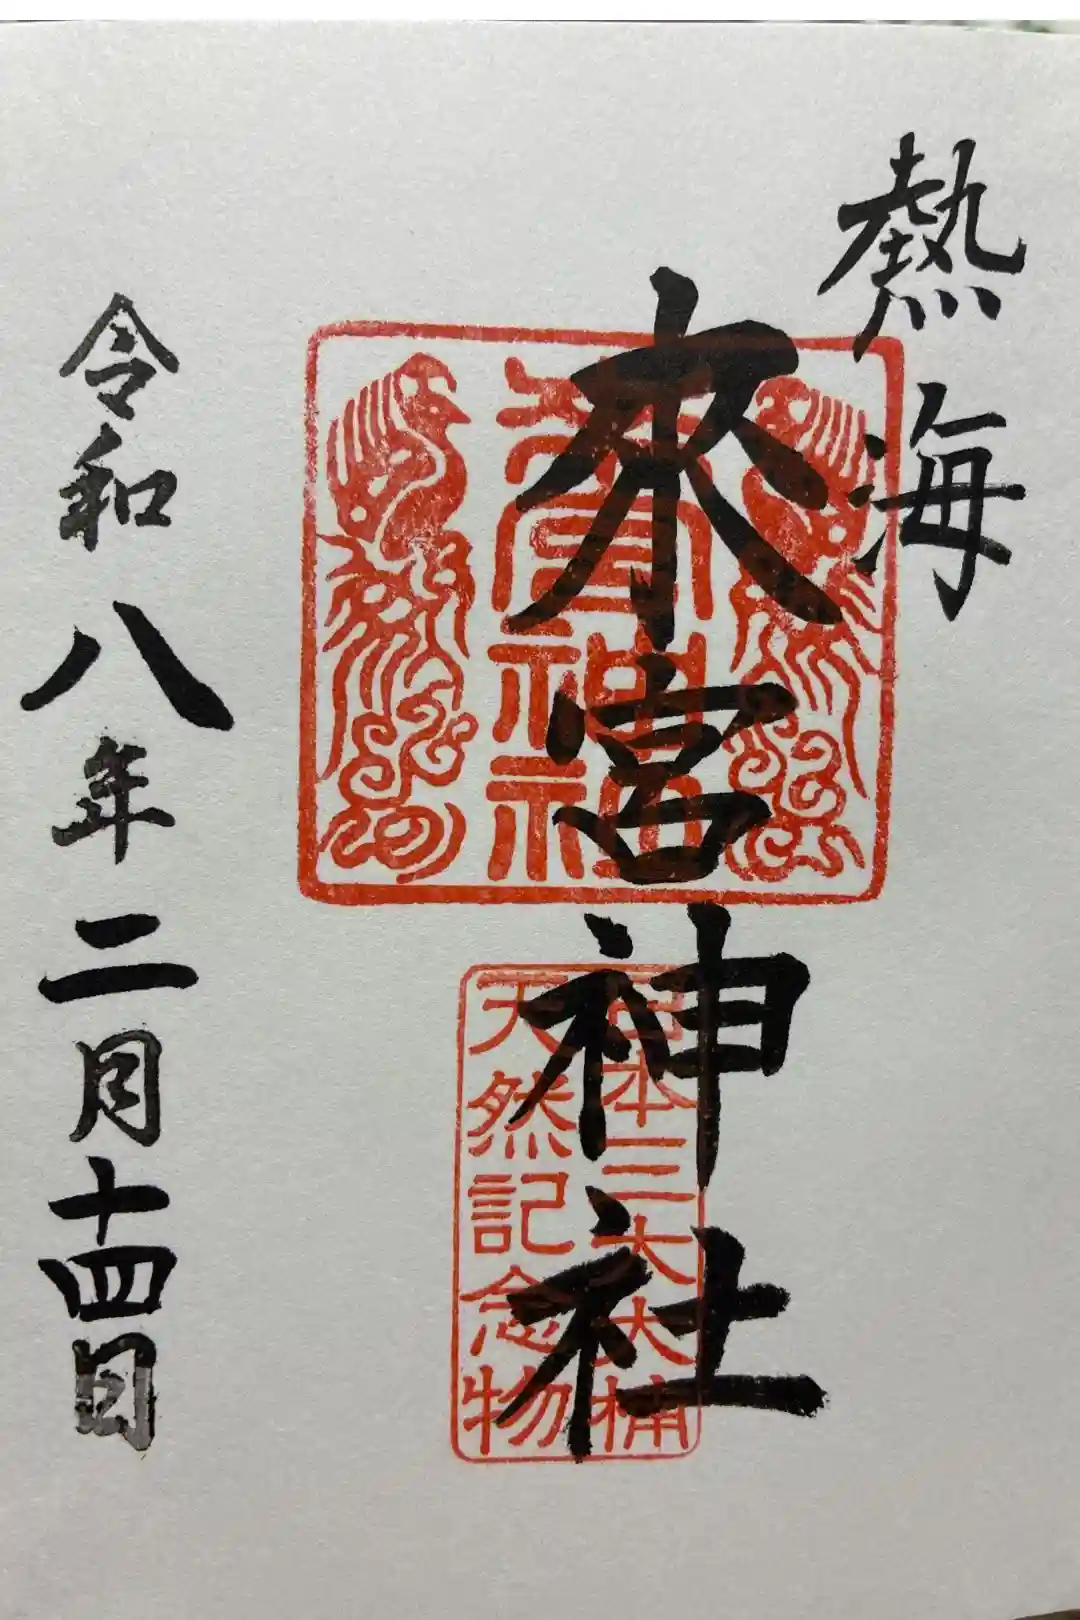 熱海
來宮神社
神社
日本三大大楠
天然記念物
令和八年二月十四日